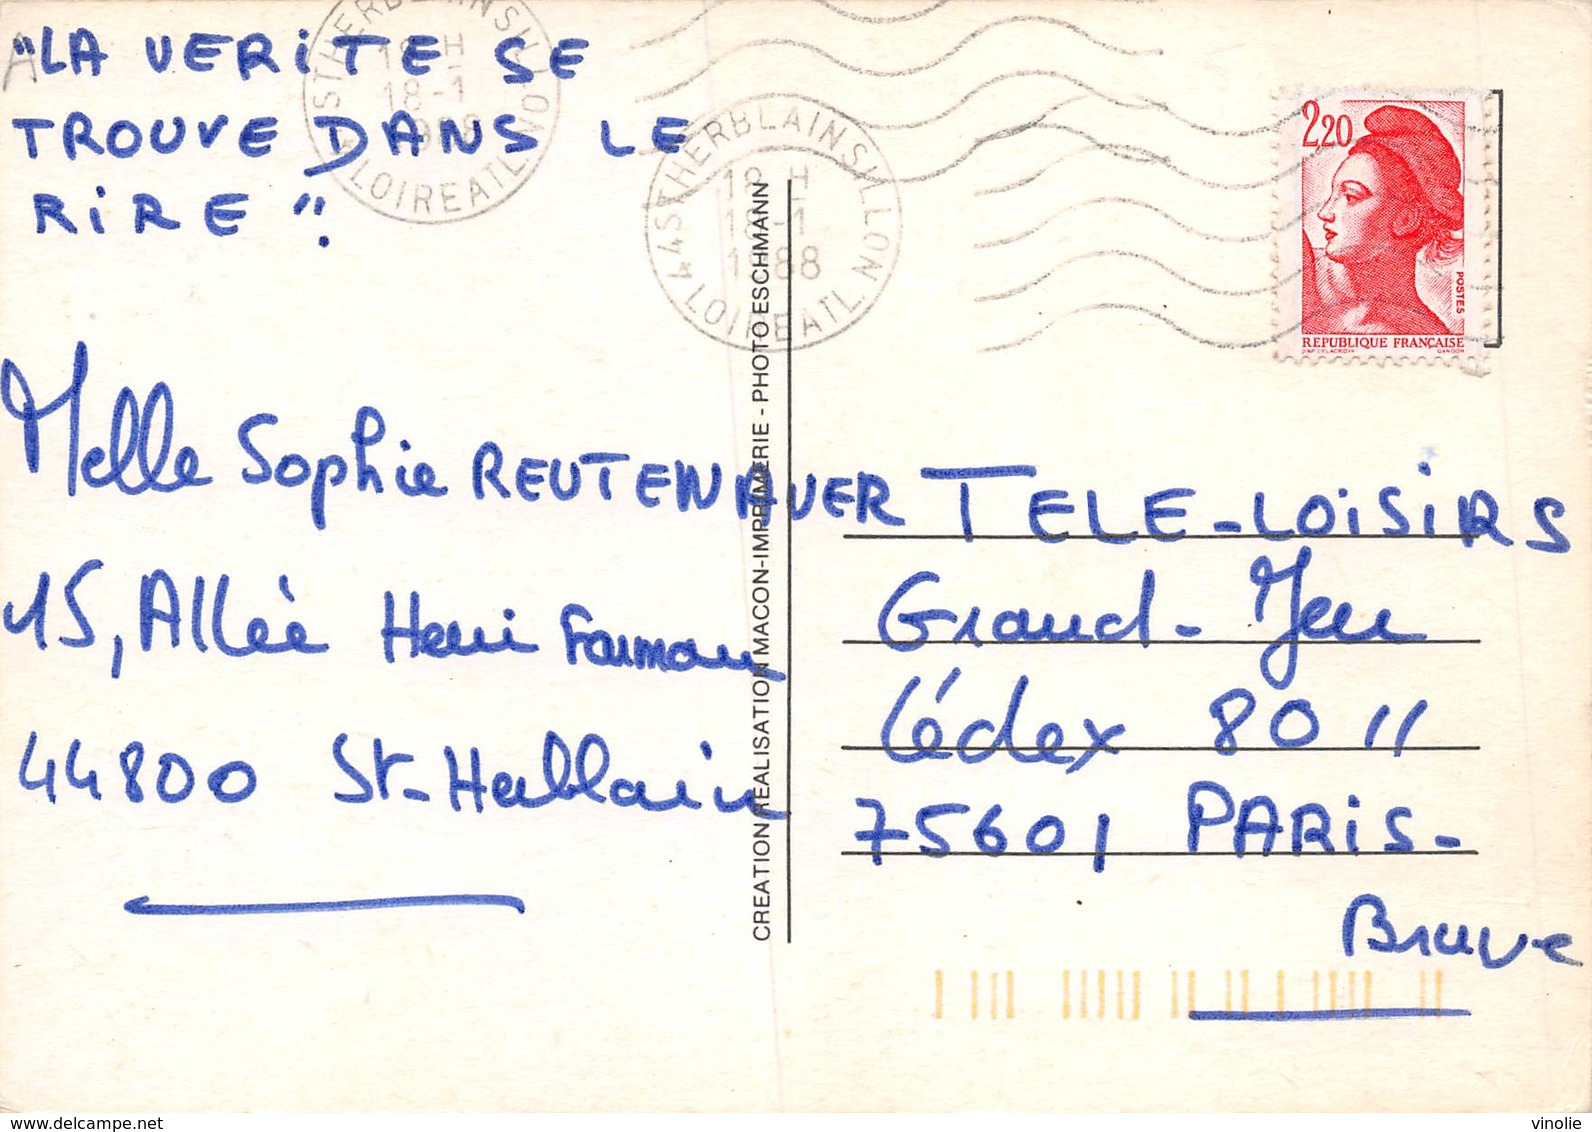 "LA VERITE SE
TROUVE DANS LE
RIRE".
Melle Sophie REUTENAUER
15, Allée Henri Farman
44800 St-Herblain
44 ST HERBLAIN SILLON
18 H
18-1
1988
LOIRE ATL.
44 ST HERBLAIN SILLON
18 H
18-1
1988
LOIRE ATL.
CREATION REALISATION MACON-IMPRIMERIE - PHOTO ESCHMANN
2,20
POSTES
REPUBLIQUE FRANÇAISE
D'AP. DELACROIX GANDON
TELE-LOISIRS
Grand-Jeu
Cédex 8011
75601 PARIS-
Brune
www.delcampe.net
vinolie